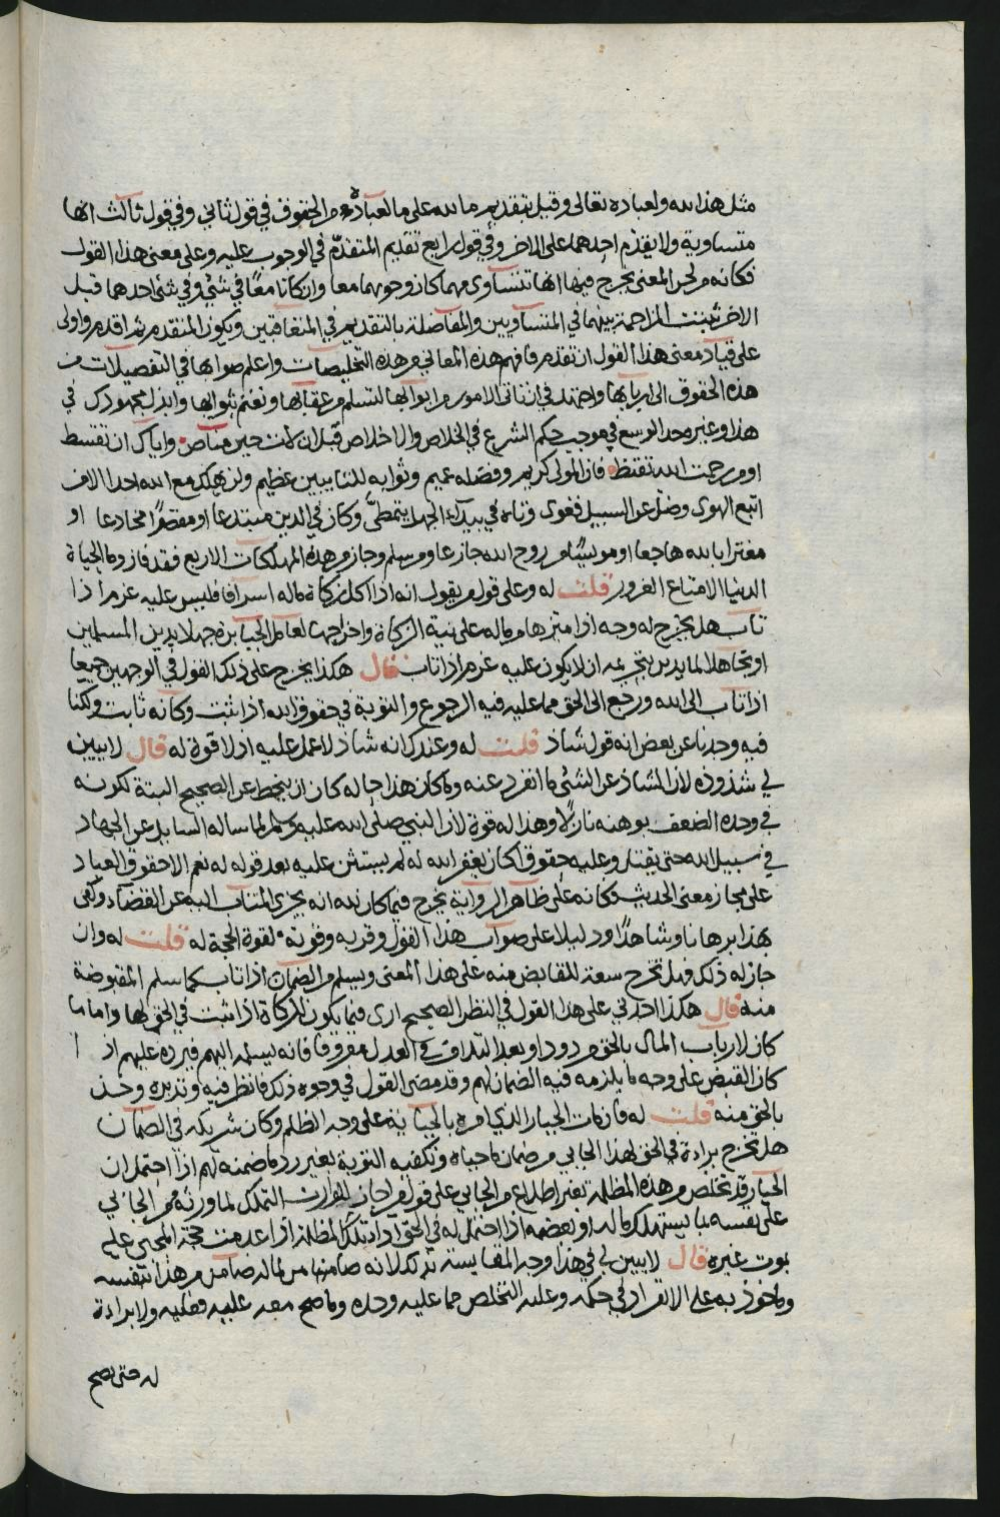 مثل هذا لله ولعباده تعالى وقيل بتقديم ما لله على ما لعباده من الحقوق في قول ثاني وفي قول ثالث انها
متساوية ولا يقدم احدهما على الاخر وفي قول رابع تقديم المتقدم في الوجوب عليه وعلى معنى هذا القول
فكانه من لحن المعنى يخرج فيها انها تتساوى مهما كان وجوبهما معا وان كانا معًا في شئي وفي شئ احدهما قبل
الاخر ثبتت المزاحمة بينهما في المتساويين والمفاضلة بالتقديم في المتعاقبين ويكون المتقدم اقدم واولى
على قياد معنى هذا القول ان تقدم فافهم هذه المعاني من هذه التخليصات واعلم صوابها في التفصيلات من
هذه الحقوق الى اربابها واجتهد في ان تاتى الامور من ابوابها لتسلم من عقابها وتغنم ثوابها وابذل مجهودك في
هذا وغيره حد الوسع في موجب حكم الشرع في الخلاص والاخلاص قبل ان لات حين مناص واياك ان تقسط
او من رحمت الله تقنط فان المولى كريم وفضله عميم وثوابه للتايبين عظيم ولن يهلك مع الله احد الا من
اتبع الهوى وضل عن السبيل فغوى وتاه في بيداء الجهل يتمطى وكان في الدين مبتدعا او مقصرًا مخادعا او
مغترا بالله هاجعا او مويسًا من روح الله جازعا ومن سلم وجاز من هذه المهلكات الاربع فقد فاز وما الحياة
الدنيا الا متاع الغرور قلت له وعلى قول من يقول انه اذا اكل زكاة ماله اسرافا فليس عليه غرم اذا
تاب هل يخرج له وجه اذا ميزها من ماله على نية الزكاة واخراجها لعامل الجبابرة جهلا بدين المسلمين
او تجاهلا لما يدين بتحريمه ان لا يكون عليه غرم اذا تاب قال هكذا يخرج على ذلك القول في الوجهين جميعا
اذا تاب الى الله ورجع الى الحق مما عليه فيه الرجوع والتوبة في حقوق الله اذا ثبت وكانه ثابت ولكنا
فيه وجدنا عن بعض انه قول شاذ قلت له وعندك انه شاذ لا عمل عليه اذ لا قوة له قال لا يبين
لي شذوذه لان الشاذ عن الشئي ما انفرد عنه وما كان هذا حاله كان ان ينحط عن الصحيح البتة لكونه
في وحده الضعف بوهنه نازلًا وهذا له قوة لان النبي صلى الله عليه وسلم لما ساله السايل عن الجهاد
في سبيل الله حتى يقتل وعليه حقوق اكان يغفر الله له لم يستثن عليه بعد قوله له نعم الا حقوق العباد
على مجاز معنى الحديث وكانه على ظاهر الرواية يخرج فيما كان لله انه يجزى المتاب اليه عن القضاء وكفى
بهذا برهانا وشاهدًا ودليلا على صواب هذا القول وقربه وقوته لقوة الحجة له قلت له وان
جاز له ذلك فهل تخرج سعة للقابض منه على هذا المعنى ويسلم من الضمان اذا تاب كما سلم المقبوضة
منه قال هكذا عندي على هذا القول في النظر الصحيح ارى فيما يكون للزكاة اذا ثبت في الحق لها واما ما
كان لارباب المال بالحق مردودا وبعد التلاق في العدل مفروقا فانه يسلمه اليهم فيرده عليهم اذا
كان القبض على وجه ما يلزمه فيه الضمان لهم وقد مضى القول في وجوه ذلك فانظر فيه وتدبره وخذ
بالحق منه قلت له فان مات الجبار الذي امره بالجباية على وجه الظلم وكان شريكه في الضمان
هل تخرج براءة في الحق لهذا الجابي من ضمان ما جباه وتكفيه التوبة بغير رد ما ضمنه لهم اذا احتمل ان
الجبار قد تخلص من هذه المظلمة بغير اطلاع من الجابي على قول من اجاز للوارث التملك لما ورثه من الجابي
على نفسه بما يستهلك ماله او بعضه اذا احتمل له في الحق اداء تلك المظلمة اذا عدمت حجة المجبي عليه
بموت غيره قال لا يبين لي في هذا وجه المقايسة بذلك لانه ضامنها من ماله ضامن من هذا بنفسه
وماخوذ به على الانفراد في حكمه وعليه التخلص مما عليه وحده وما صح معه عليه فعليه ولا براءة
له حتى يصح